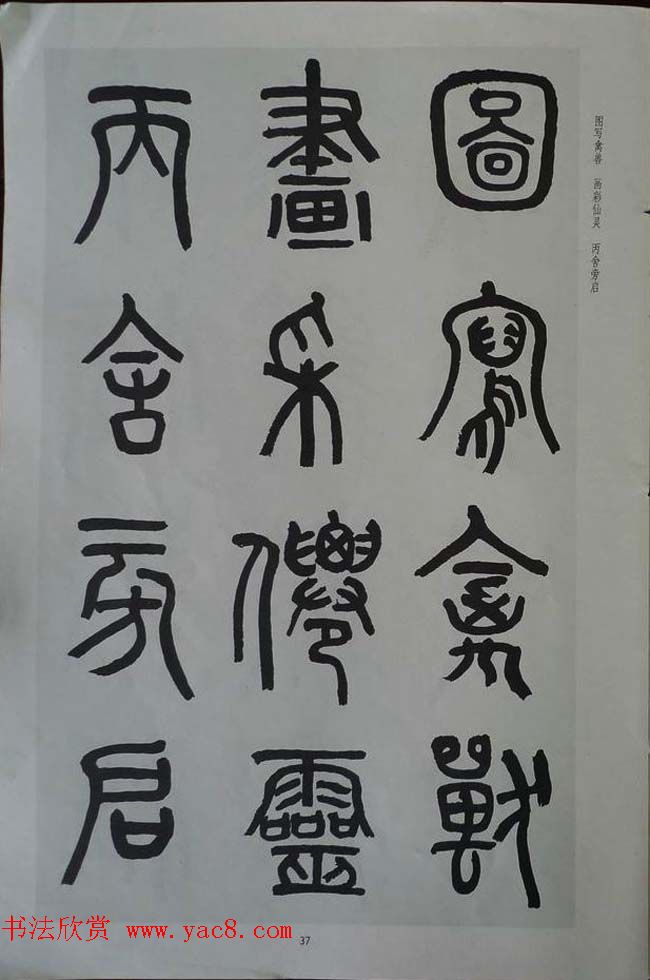 圖寫禽獸
畫采僊靈
丙舍旁启
图写禽兽 画彩仙灵 丙舍旁启
37
书法欣赏 www.yac8.com